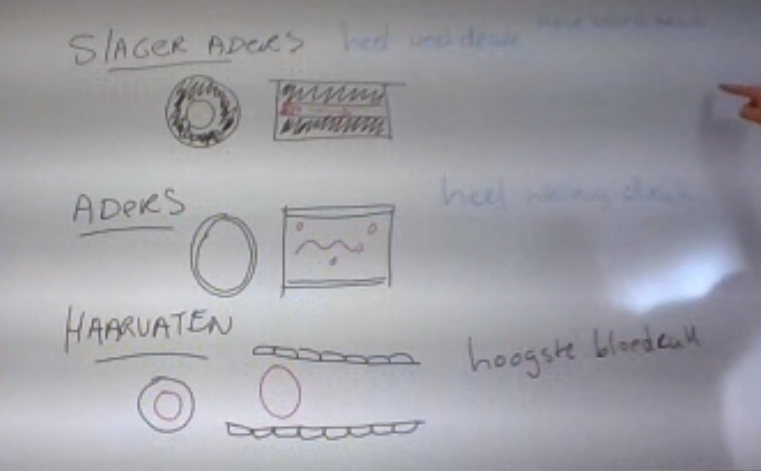 SLAGER ADERS heel veel druk
ADERS heel weinig druk
HAARVATEN hoogste bloedruk